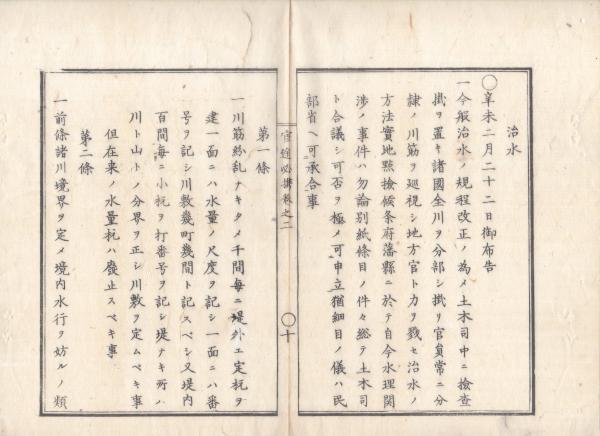 治水
〇辛未二月二十二日御布告
一今般治水ノ規程改正ノ為メ土木司中ニ檢査
掛ヲ置キ諸國全川ヲ分部シ掛リ官員常ニ分
隷ノ川筋ヲ巡視シ地方官ト力ヲ戮セ治水ノ
方法實地點檢候条府藩縣ニ於テ自今水理関
渉ノ事件ハ勿論別紙條目ノ件々総テ土木司
ト合議シ可否ヲ極メ可申立猶細目ノ儀ハ民
部省ヘ可承合事
官途必携巻之二
〇十
第一條
一川筋紛乱ナキタメ千間毎ニ堤外エ定杭ヲ
建一面ニハ水量ノ尺度ヲ記シ一面ニハ番
号ヲ記シ川敷幾町幾間ト記スベシ又堤内
百間毎ニ小杭ヲ打番号ヲ記シ堤ナキ所ハ
川ト山トノ分界ヲ正シ川敷ヲ定ムベキ事
但在来ノ水量杭ハ廢止スベキ事
第二條
一前條諸川境界ヲ定メ境内水行ヲ妨ルノ類